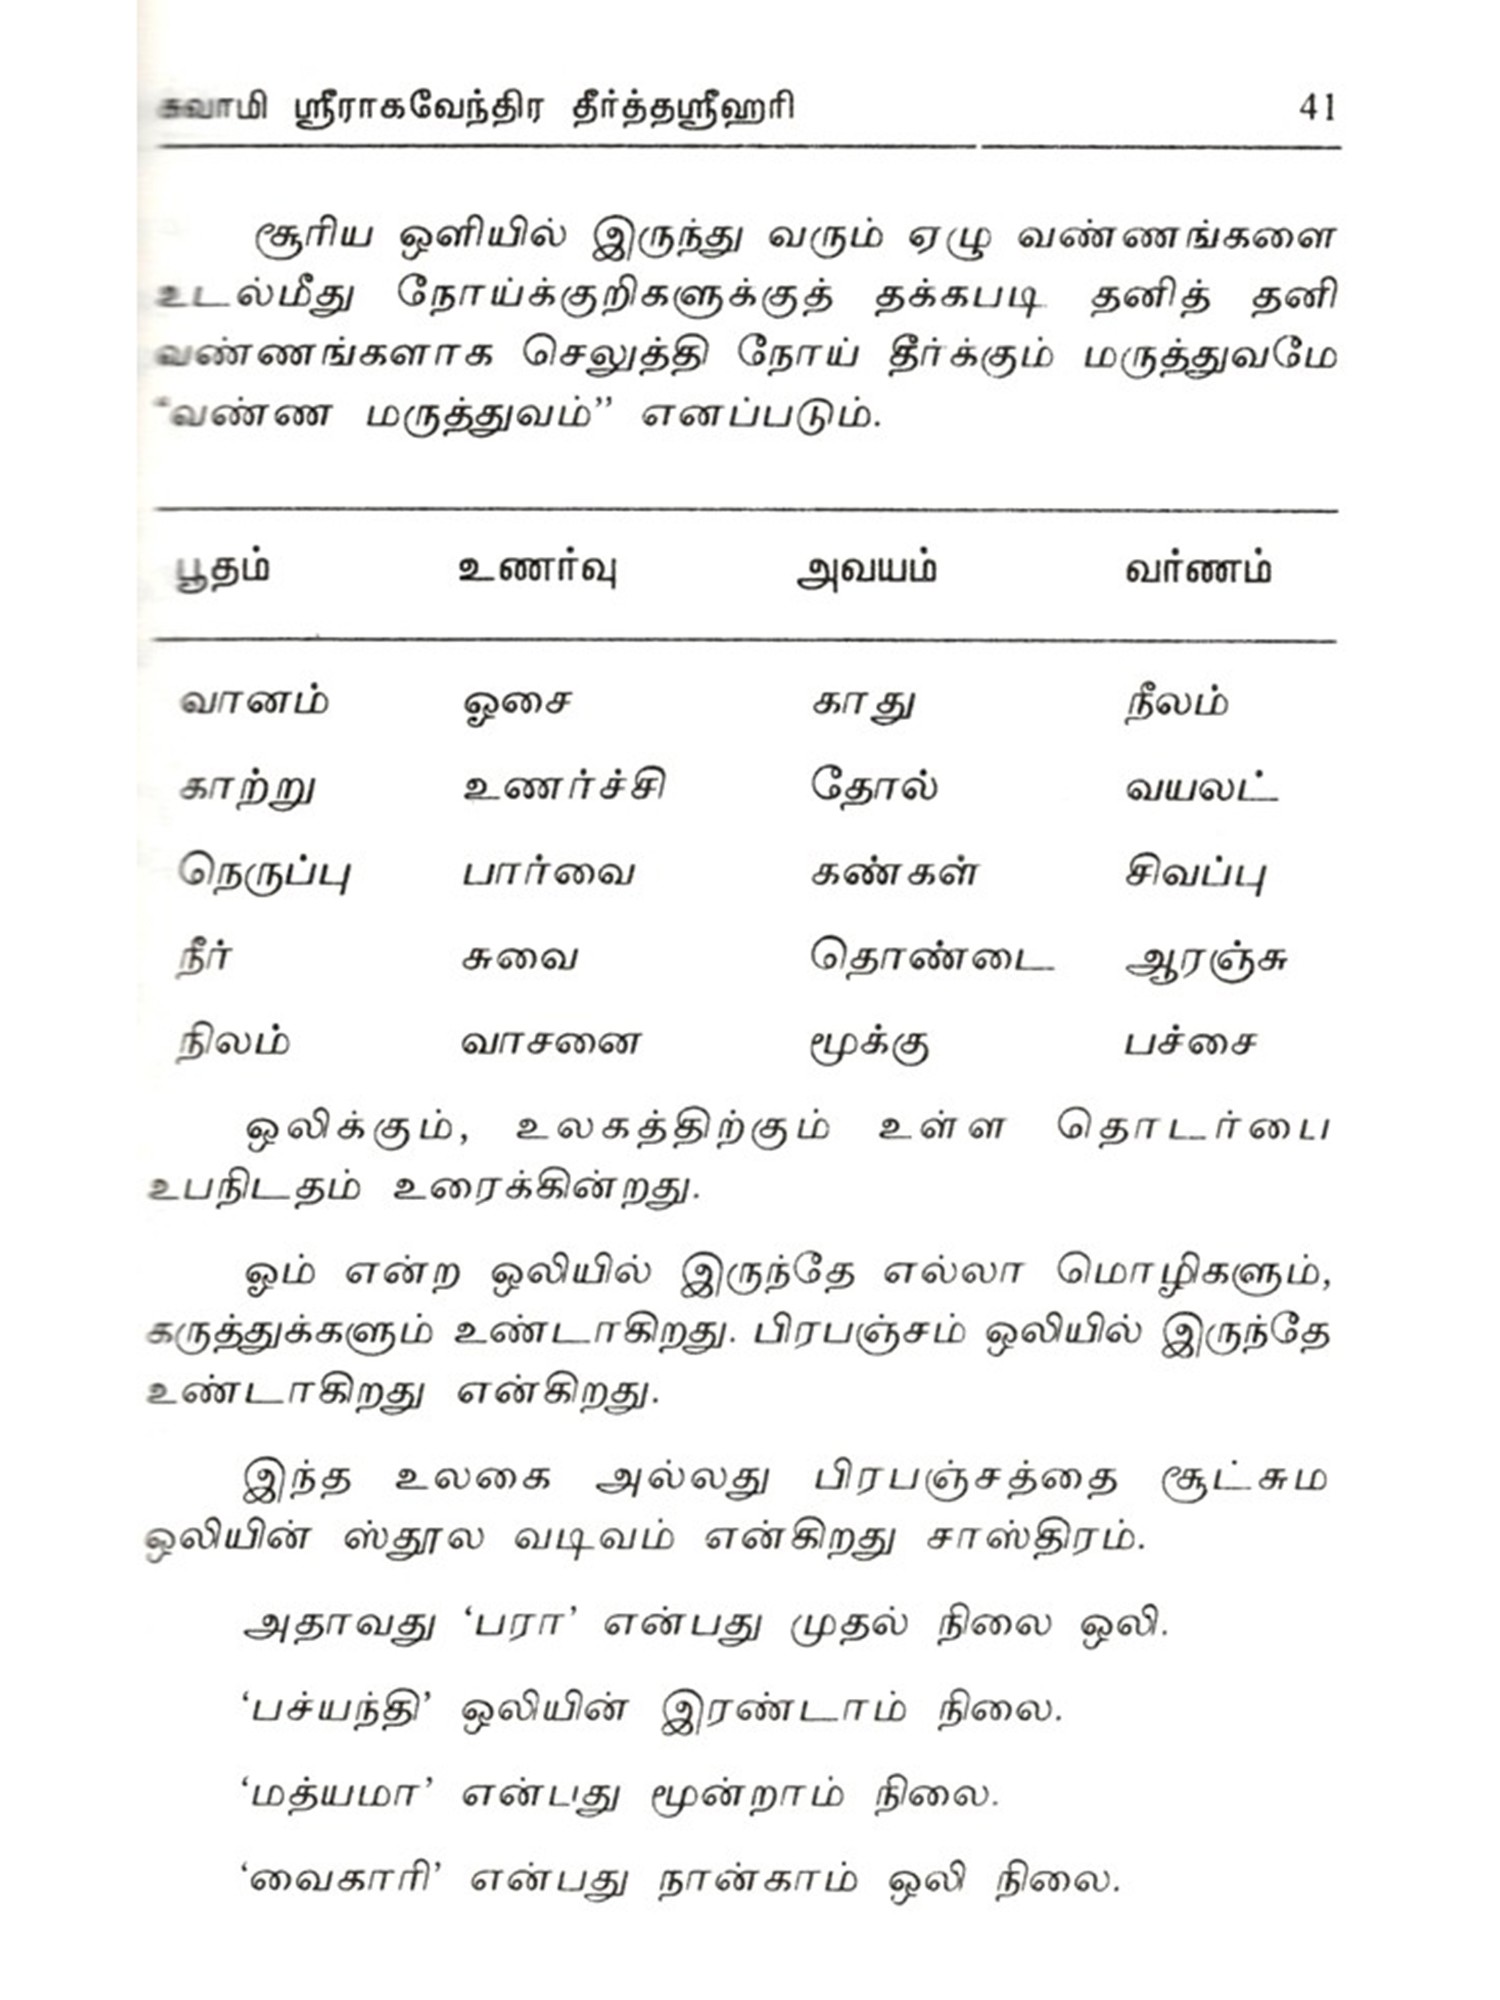 சுவாமி ஸ்ரீராகவேந்திர தீர்த்தஸ்ரீஹரி 41
சூரிய ஒளியில் இருந்து வரும் ஏழு வண்ணங்களை
உடல்மீது நோய்க்குறிகளுக்குத் தக்கபடி தனித் தனி
வண்ணங்களாக செலுத்தி நோய் தீர்க்கும் மருத்துவமே
“வண்ண மருத்துவம்” எனப்படும்.
பூதம் உணர்வு அவயம் வர்ணம்
வானம் ஓசை காது நீலம்
காற்று உணர்ச்சி தோல் வயலட்
நெருப்பு பார்வை கண்கள் சிவப்பு
நீர் சுவை தொண்டை ஆரஞ்சு
நிலம் வாசனை மூக்கு பச்சை
ஒலிக்கும், உலகத்திற்கும் உள்ள தொடர்பை
உபநிடதம் உரைக்கின்றது.
ஓம் என்ற ஒலியில் இருந்தே எல்லா மொழிகளும்,
கருத்துக்களும் உண்டாகிறது. பிரபஞ்சம் ஒலியில் இருந்தே
உண்டாகிறது என்கிறது.
இந்த உலகை அல்லது பிரபஞ்சத்தை சூட்சும
ஒலியின் ஸ்தூல வடிவம் என்கிறது சாஸ்திரம்.
அதாவது ‘பரா’ என்பது முதல் நிலை ஒலி.
‘பச்யந்தி’ ஒலியின் இரண்டாம் நிலை.
‘மத்யமா’ என்பது மூன்றாம் நிலை.
‘வைகாரி’ என்பது நான்காம் ஒலி நிலை.